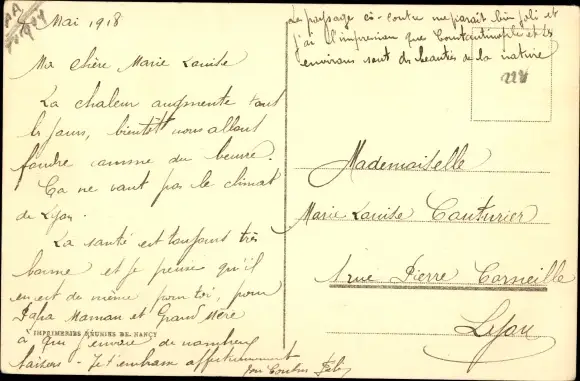 Mai 1918
Ma chère Marie Louise
La chaleur augmente tous
les jours, bientôt nous allons
fondre comme du beurre.
Ça ne vaut pas le climat
de Lyon.
La santé est toujours très
bonne et je pense qu'il
en est de même pour toi, pour
Papa Maman et Grand Mère
IMPRIMERIES RÉUNIES DE NANCY
à qui j'envoie de nombreux
baisers - Je t'embrasse affectueusement
ton
Le paysage ci-contre me parait bien joli et
j'ai l'impression que Constantinople et ses
environs sont des beautés de la nature
228
Mademoiselle
Marie Louise Couturier
1 rue Pierre Corneille
Lyon